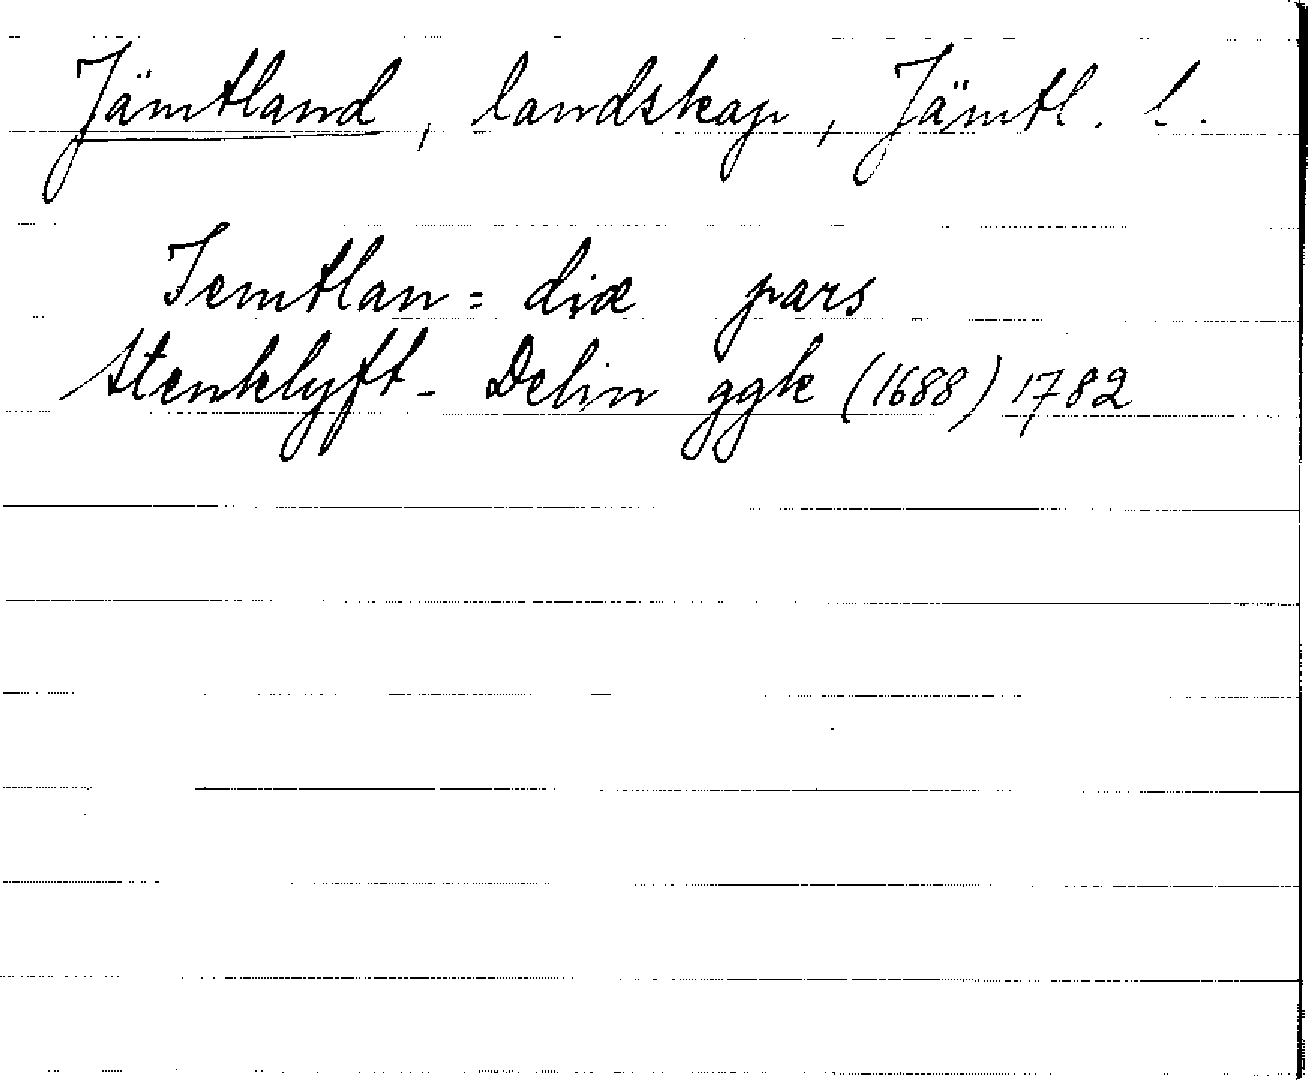 Jämtland, landskap, Jämtl. l.
Jemtlan= diæ pars
Stenklyft- Delin ggk (1688) 1782